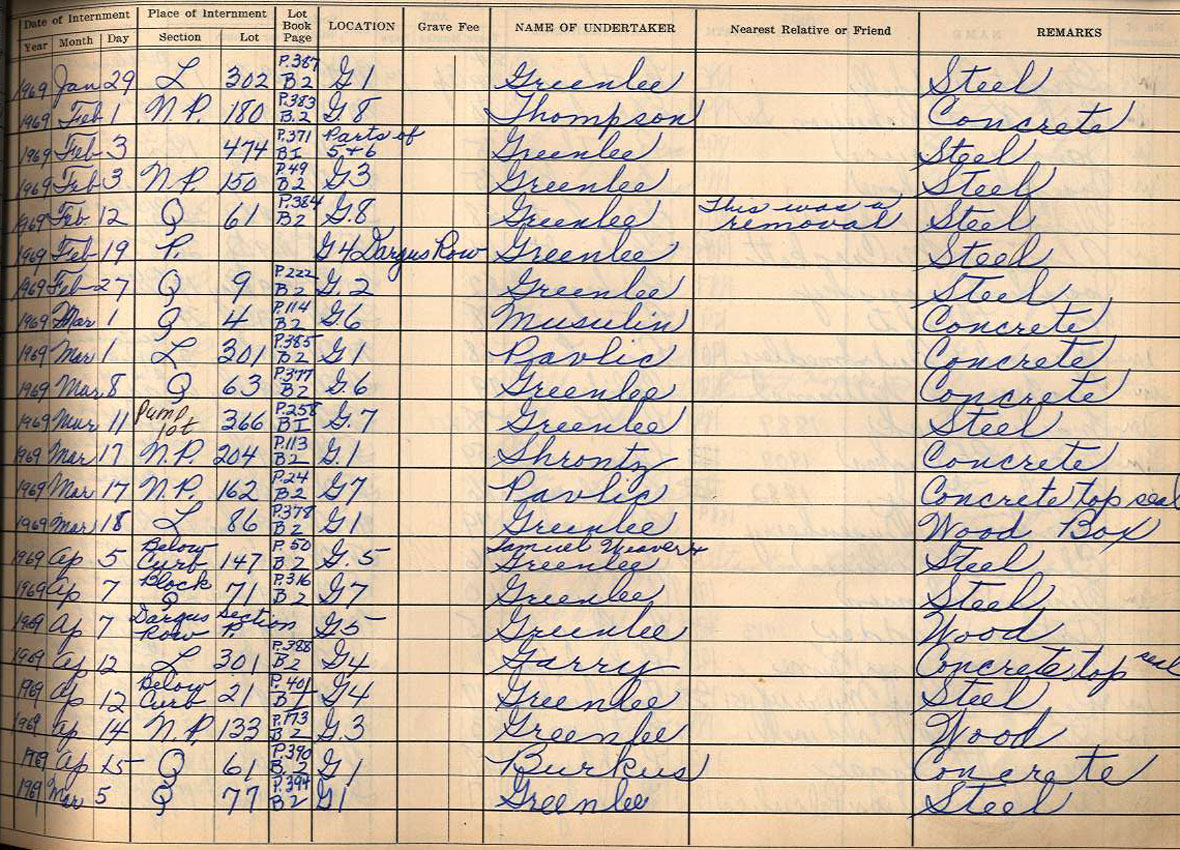 Date of Internment Place of Internment Lot Book Page LOCATION Grave Fee NAME OF UNDERTAKER Nearest Relative or Friend REMARKS
Year Month Day Section Lot
1969 Jan 29 L 302 P.387 B2 G1 Greenlee Steel
1969 Feb 1 N.P. 180 P.383 B.2 G.8 Thompson Concrete
1969 Feb 3 474 P.371 B1 Parts of 5+6 Greenlee Steel
1969 Feb 3 N.P. 150 P.49 B2 G3 Greenlee Steel
1969 Feb 12 Q 61 P.384 B2 G.8 Greenlee This was a removal Steel
1969 Feb 19 P. G4 Dargus Row Greenlee Steel
1969 Feb 27 Q 9 P.222 B2 G.2 Greenlee Steel
1969 Mar 1 Q 4 P.114 B2 G.6 Musulin Concrete
1969 Mar 1 L 301 P.385 B2 G1 Pavlic Concrete
1969 Mar 8 Q 63 P.377 B2 G.6 Greenlee Concrete
1969 Mar 11 Pump lot 366 P.258 B1 G.7 Greenlee Steel
1969 Mar 17 N.P. 204 P.113 B2 G1 Shrontz Concrete
1969 Mar 17 N.P. 162 P.24 B2 G7 Pavlic Concrete top seal
1969 Mar 18 L 86 P.378 B2 G1 Greenlee Wood Box
1969 Ap 5 Below Curb 147 P.50 B2 G.5 Samuel Weaver + Greenlee Steel
1969 Ap 7 Block Q 71 P.316 B2 G7 Greenlee Steel
1969 Ap 7 Dargus Row Section P. G5 Greenlee Wood
1969 Ap 12 L 301 P.388 B2 G4 Garry Concrete top seal
1969 Ap 12 Below Curb 21 P.401 B1 G4 Greenlee Steel
1969 Ap 14 N.P. 133 P.173 B2 G.3 Greenlee Wood
1969 Ap 15 Q 61 P.390 B.2 G1 Burkus Concrete
1969 Mar 5 Q 77 P.394 B2 G1 Greenlee Steel